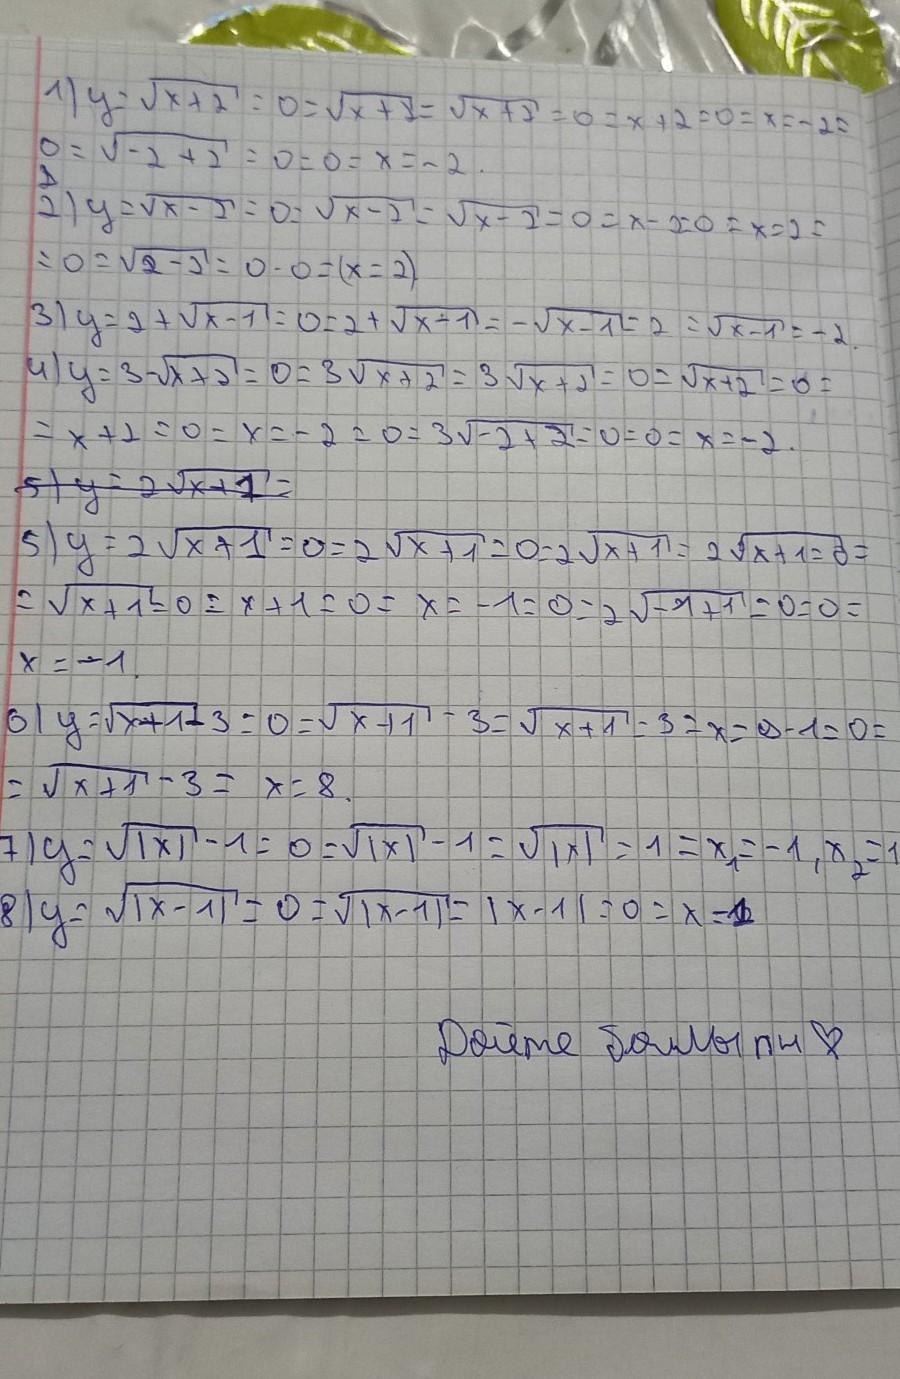 1) y=√x+2 = 0=√x+2= √x+2 = 0 = x+2=0 = x=-2=
0 = √-2+2 = 0=0 = x=-2.
2) y=√x-2 = 0= √x-2 = √x-2 = 0 = x-2=0 = x=2=
= 0=√2-2 = 0-0=(x=2)
3) y=2+√x-1 = 0=2+√x-1 = -√x-1 = 2 = √x-1 = -2.
4) y=3-√x+2 = 0=3√x+2 = 3√x+2 = 0=√x+2 = 0=
= x+2=0 = x=-2 = 0=3√-2+2 = 0=0 = x=-2.
5) y=2√x+1 =
5) y=2√x+1 = 0=2√x+1 = 0=2√x+1 = 2√x+1=0=
= √x+1=0 = x+1=0= x=-1=0=2√-1+1 = 0=0=
x=-1.
6) y=√x+1-3=0=√x+1 - 3= √x+1 = 3 = x= 9-1=0=
= √x+1 - 3 = x=8.
7) y= √|x| - 1 = 0=√|x| - 1 = √|x| = 1 = x₁=-1, x₂=1
8) y= √|x-1| = 0=√|x-1| = |x-1| = 0 = x=1
Дайте баллы пн ♡